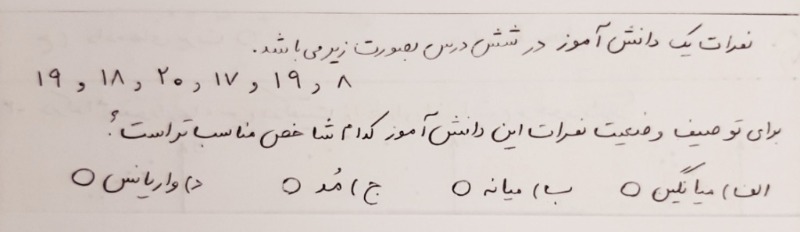 نمرات یک دانش آموز در شش درس بصورت زیر می باشد.
۱۹ و ۱۸ و ۲۰ و ۱۷ و ۱۹ و ۸
برای توصیف وضعیت نمرات این دانش آموز کدام شاخص مناسب تر است؟
الف) میانگین ○ ب) میانه ○ ج) مُد ○ د) واریانس ○